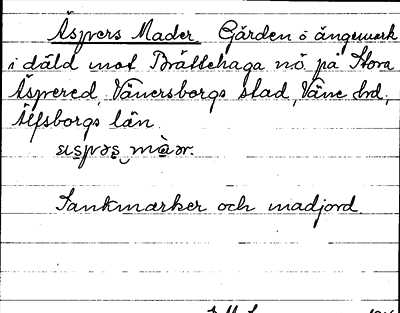 Äspers Mader. Gärden o ängsmark
i däld mot Brättehaga n.ö. på Stora
Äspered, Vänersborgs stad, Väne hd,
Älfsborgs län.
Sankmarker och madjord.